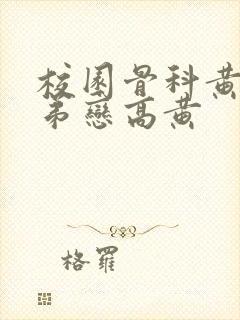 校園骨科黃
弟戀高黃
格羅